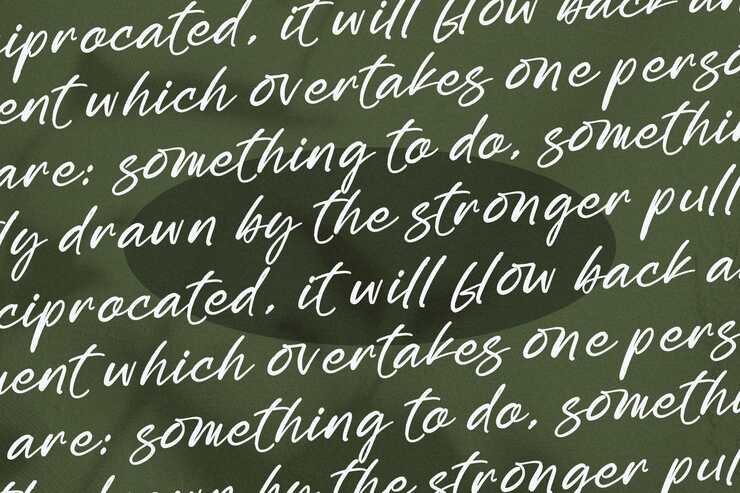 ciprocated, it will flow back an
ent which overtakes one perso
are: something to do, somethin
ly drawn by the stronger pull
ciprocated, it will flow back a
ent which overtakes one pers
are: something to do, someth
drawn by the stronger pull